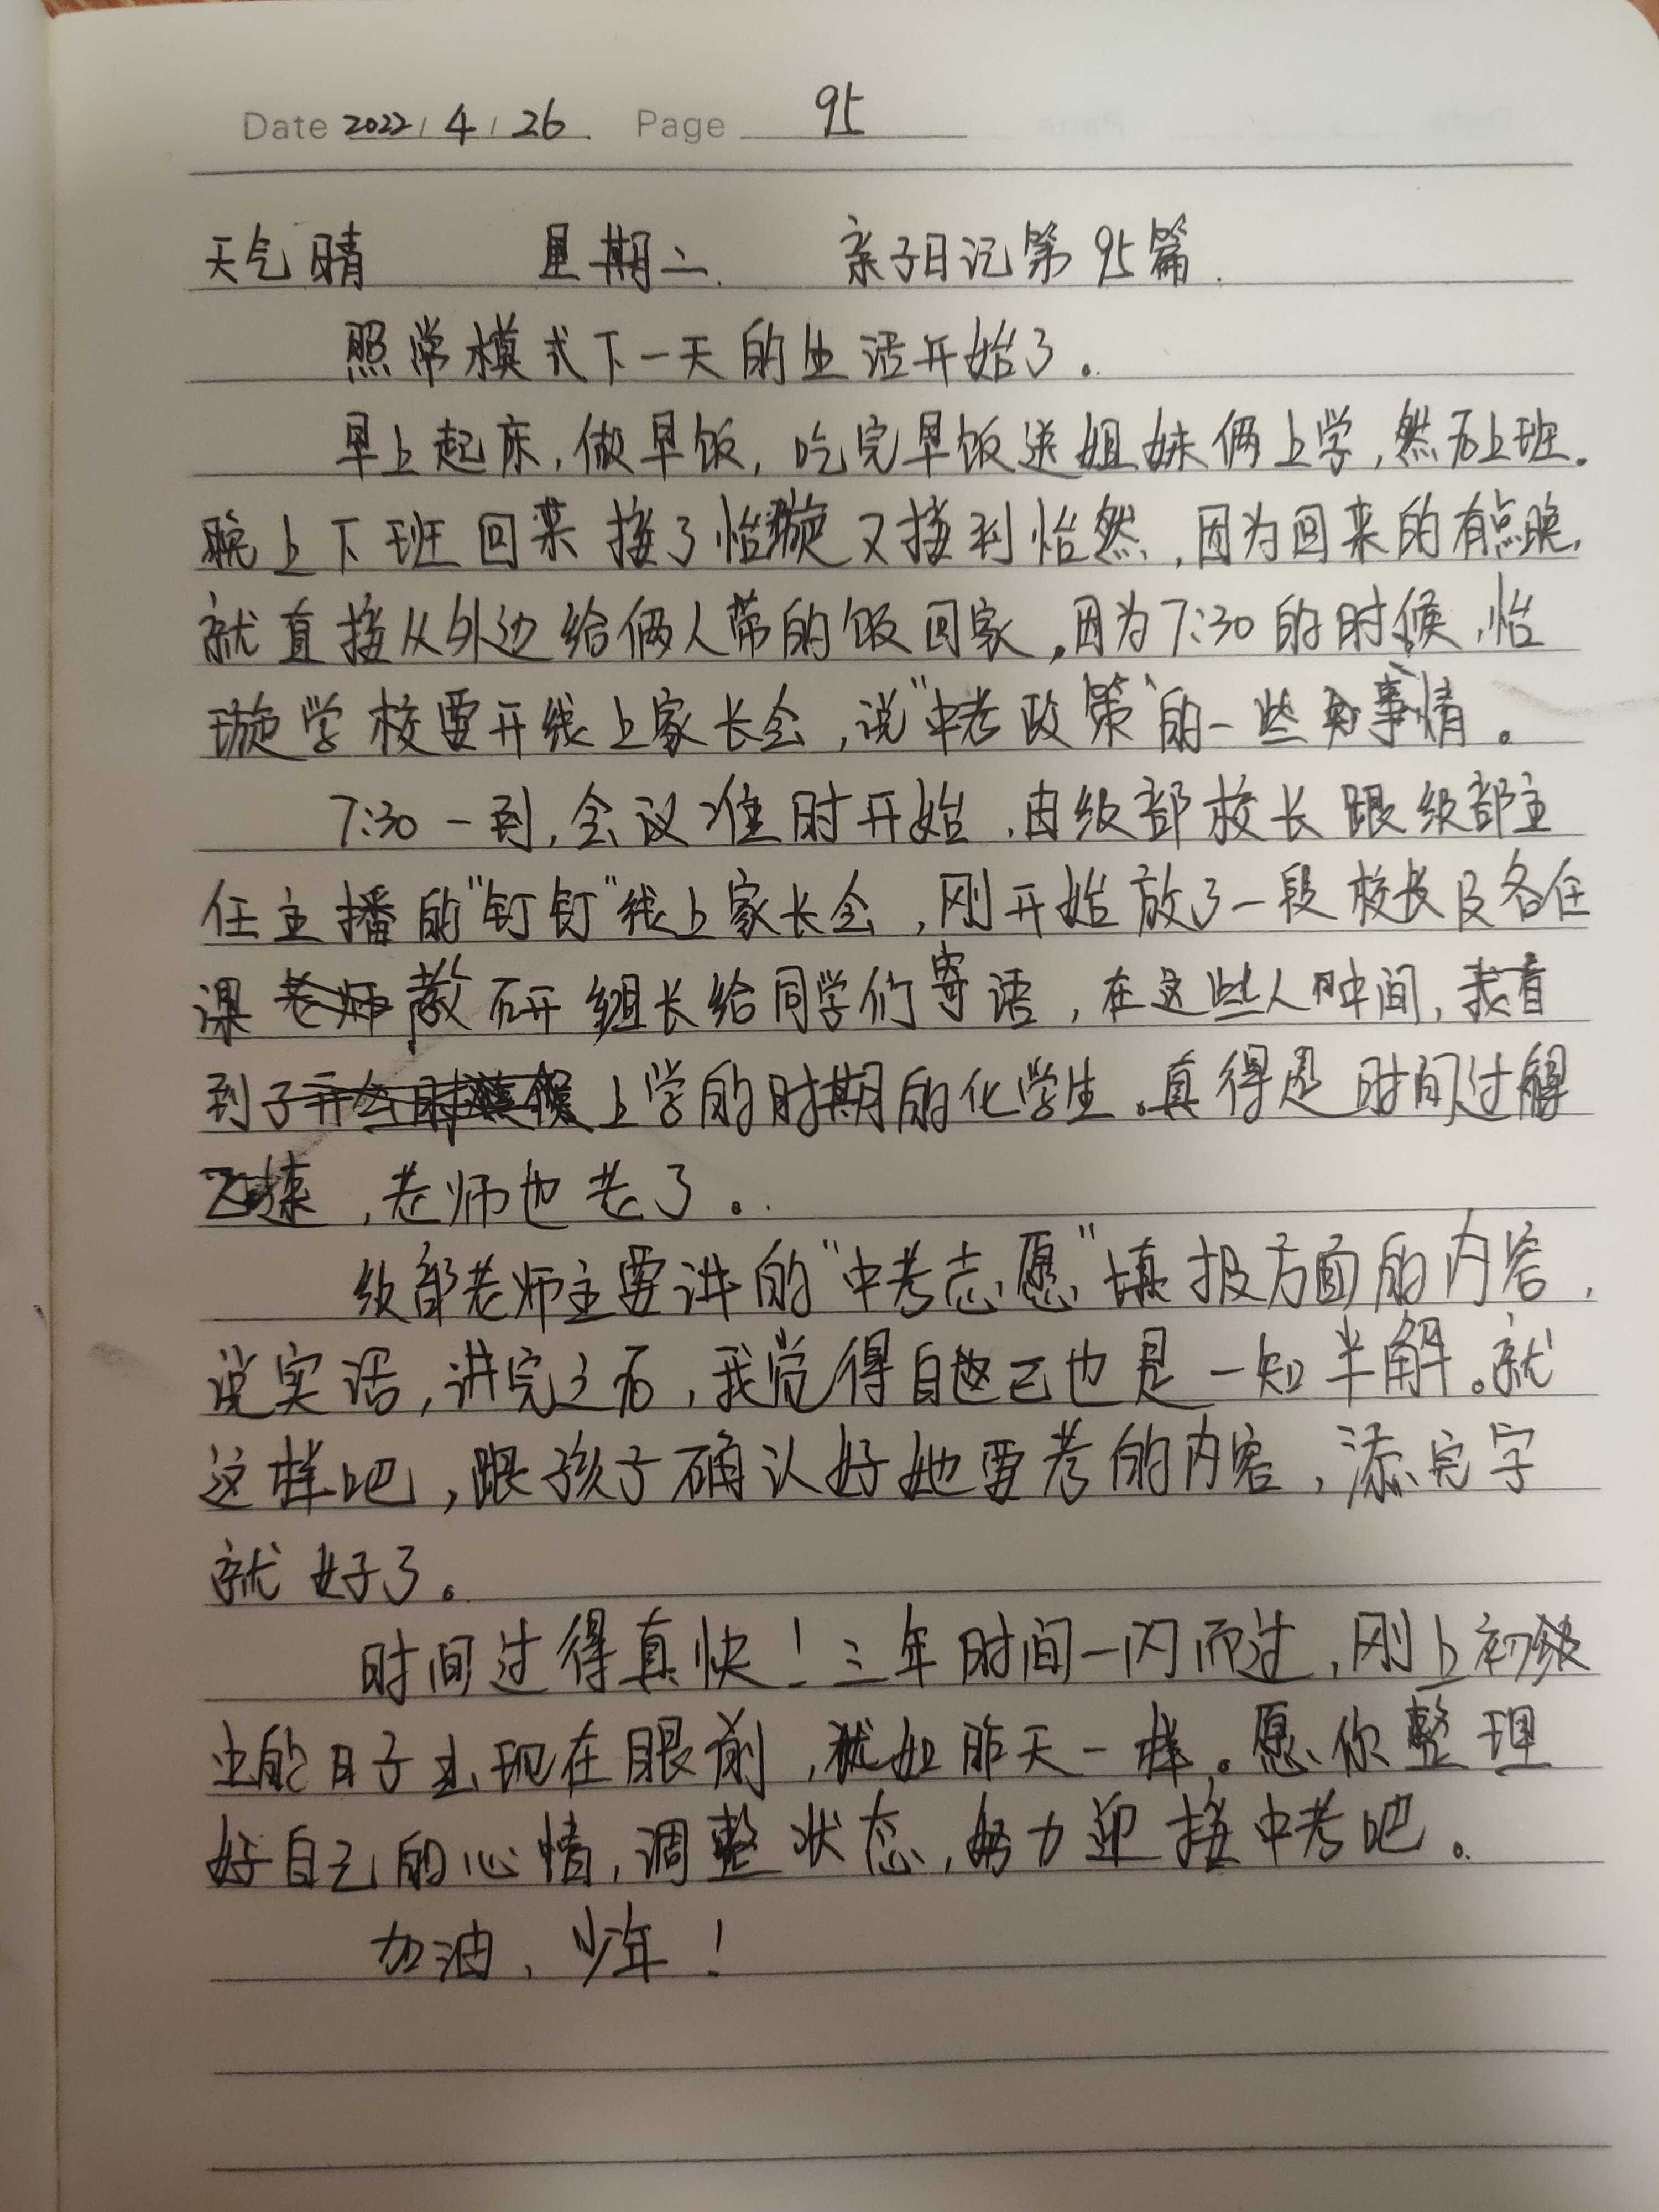 Date 2022/4/26. Page 95
天气晴 星期二. 亲子日记第95篇.
照常模式下一天的生活开始了。
早上起床,做早饭,吃完早饭送姐妹俩上学,然后上班。
晚上下班回来接了怡璇又接到怡然,因为回来的有点晚,
就直接从外边给俩人带的饭回家,因为7:30的时候,怡
璇学校要开线上家长会,说"中考政策"的一些事情。
7:30一到,会议准时开始,由级部校长跟级部主
任主播的"钉钉"线上家长会,刚开始放了一段校长及各任
课教研组长给同学们寄语,在这些人中间,我看
到了上学的时期的化学生。真得是时间过得
飞速,老师也老了。
级部老师主要讲的"中考志愿"填报方面的内容,
说实话,讲完之后,我觉得自己也是一知半解。就
这样吧,跟孩子确认好她要考的内容,添完字
就好了。
时间过得真快!三年时间一闪而过,刚上初级
的日子出现在眼前,就如昨天一样。愿你整理
好自己的心情,调整状态,努力迎接中考吧。
加油,少年!